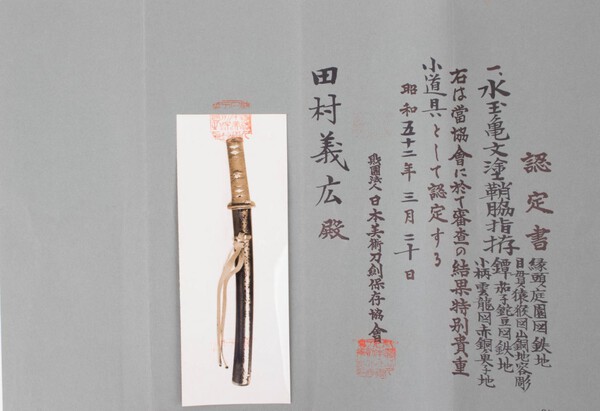 認定書
一、水玉亀文塗鞘脇指拵
縁頭 庭園図 鉄地
目貫 猿猴図 山銅地容彫
鐔 茄子蛇豆図 鉄地
小柄 雲龍図 赤銅魚子地
右は當協會に於て審査の結果特別貴重
小道具として認定する
昭和五十二年三月二十日
財團法人日本美術刀剣保存協會
田村義広殿